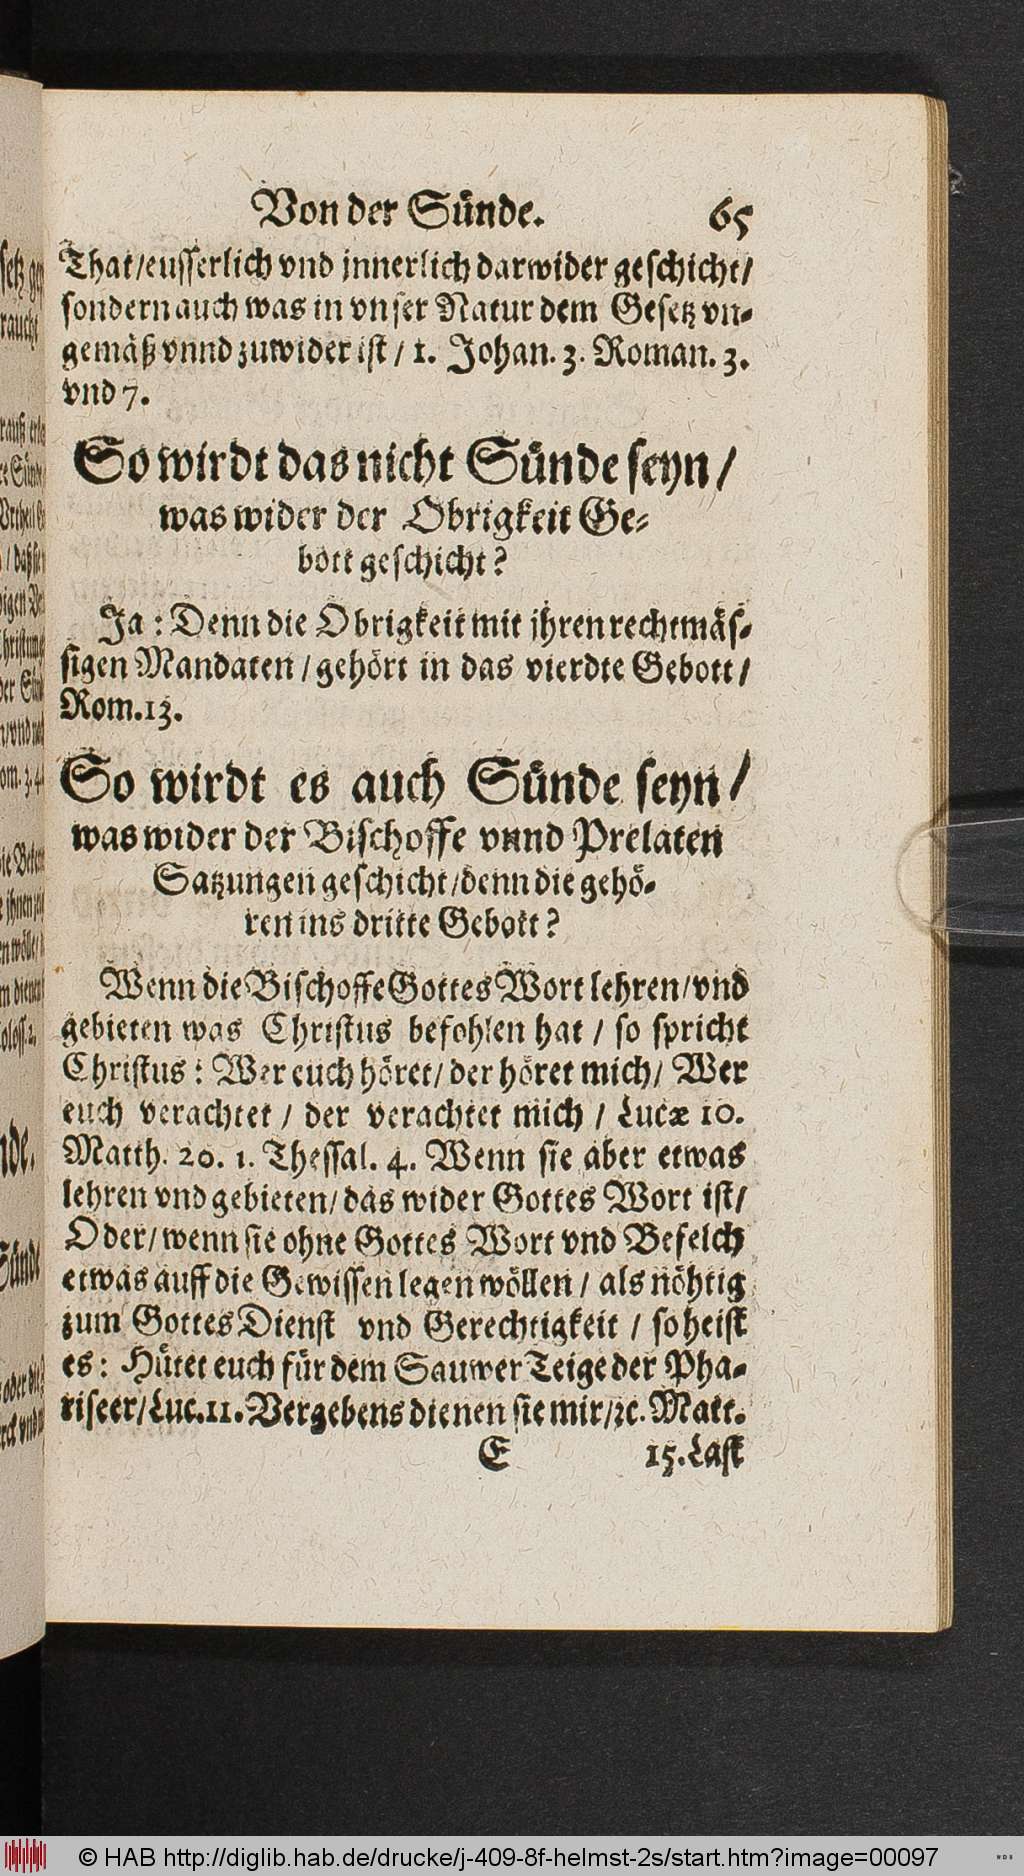 Von der Sünde. 65
That/eusserlich vnd jnnerlich darwider geschicht/
sondern auch was in vnser Natur dem Gesetz vn-
gemäß vnnd zuwider ist / 1. Johan. 3. Roman. 3.
vnd 7.
So wirdt das nicht Sünde seyn/
was wider der Obrigkeit Ge-
bott geschicht?
Ja : Denn die Obrigkeit mit jhren rechtmäs-
sigen Mandaten / gehört in das vierdte Gebott/
Rom.13.
So wirdt es auch Sünde seyn/
was wider der Bischoffe vnnd Prelaten
Satzungen geschicht/denn die gehö-
ren ins dritte Gebott?
Wenn die Bischoffe Gottes Wort lehren/vnd
gebieten was Christus befohlen hat / so spricht
Christus : Wer euch höret/ der höret mich/ Wer
euch verachtet / der verachtet mich / Lucæ 10.
Matth. 20. 1. Thessal. 4. Wenn sie aber etwas
lehren vnd gebieten/ das wider Gottes Wort ist/
Oder/ wenn sie ohne Gottes Wort vnd Befelch
etwas auff die Gewissen legen wöllen / als nöhtig
zum Gottes Dienst vnd Gerechtigkeit / so heist
es : Hütet euch für dem Sauwer Teige der Pha-
riseer/Luc.11. Vergebens dienen sie mir/ꝛc. Matt.
E 15. Last
© HAB http://diglib.hab.de/drucke/j-409-8f-helmst-2s/start.htm?image=00097